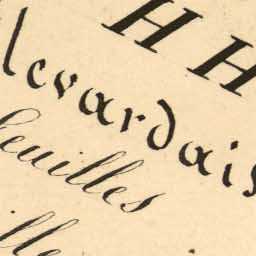 H H
levardais
feuilles